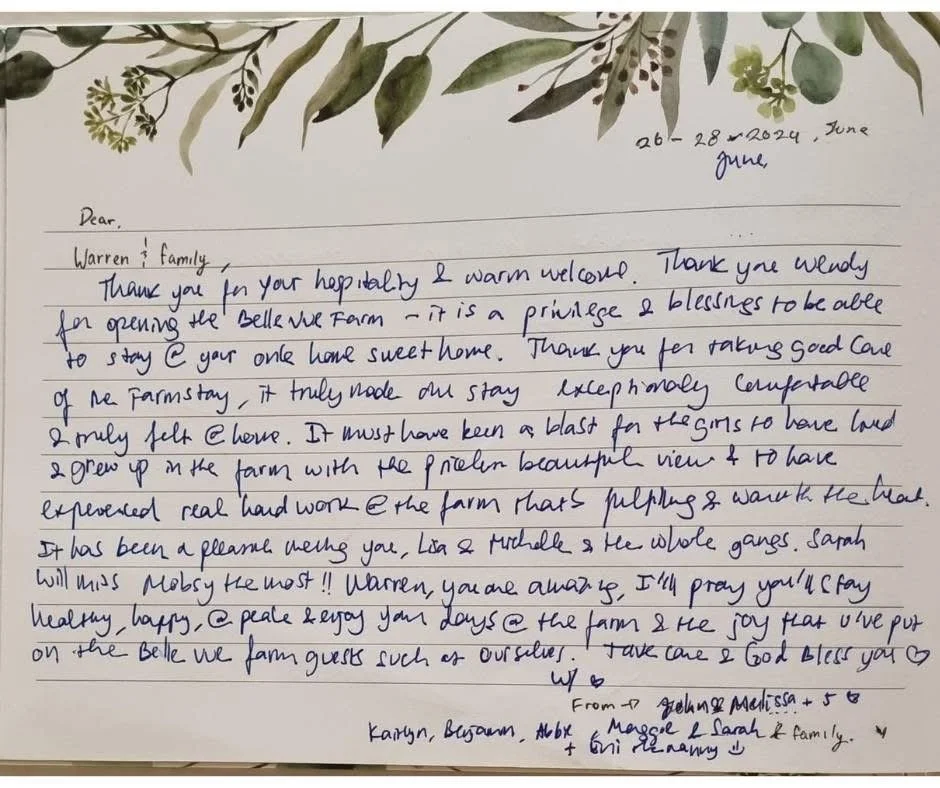 26 - 28 - 2024, June
June,
Dear,
Warren & family,
Thank you for your hospitality & warm welcome. Thank you Wendy
for opening the Belle Vue Farm - it is a privilege & blessings to be able
to stay @ your once home sweet home. Thank you for taking good care
of the Farmstay, it truly made our stay exceptionally comfortable
& truly felt @ home. It must have been a blast for the girls to have lived
& grew up in the farm with the priceless beautiful view & to have
experienced real hard work @ the farm that's fulfilling & warmth the heart.
It has been a pleasure meeting you, Lisa & Michelle & the whole gangs. Sarah
will miss Mobsy the most!! Warren, you are amazing, I'll pray you'll stay
healthy, happy, @ peace & enjoy your days @ the farm & the joy that u've put
on the Belle Vue farm guests such as ourselves. Take care & God Bless you ♡
w/ ♡
From → John & Melissa + 5 ♡
Kaitlyn, Benjamin, Abby, Maggie & Sarah & family.
+ the nanny ☺